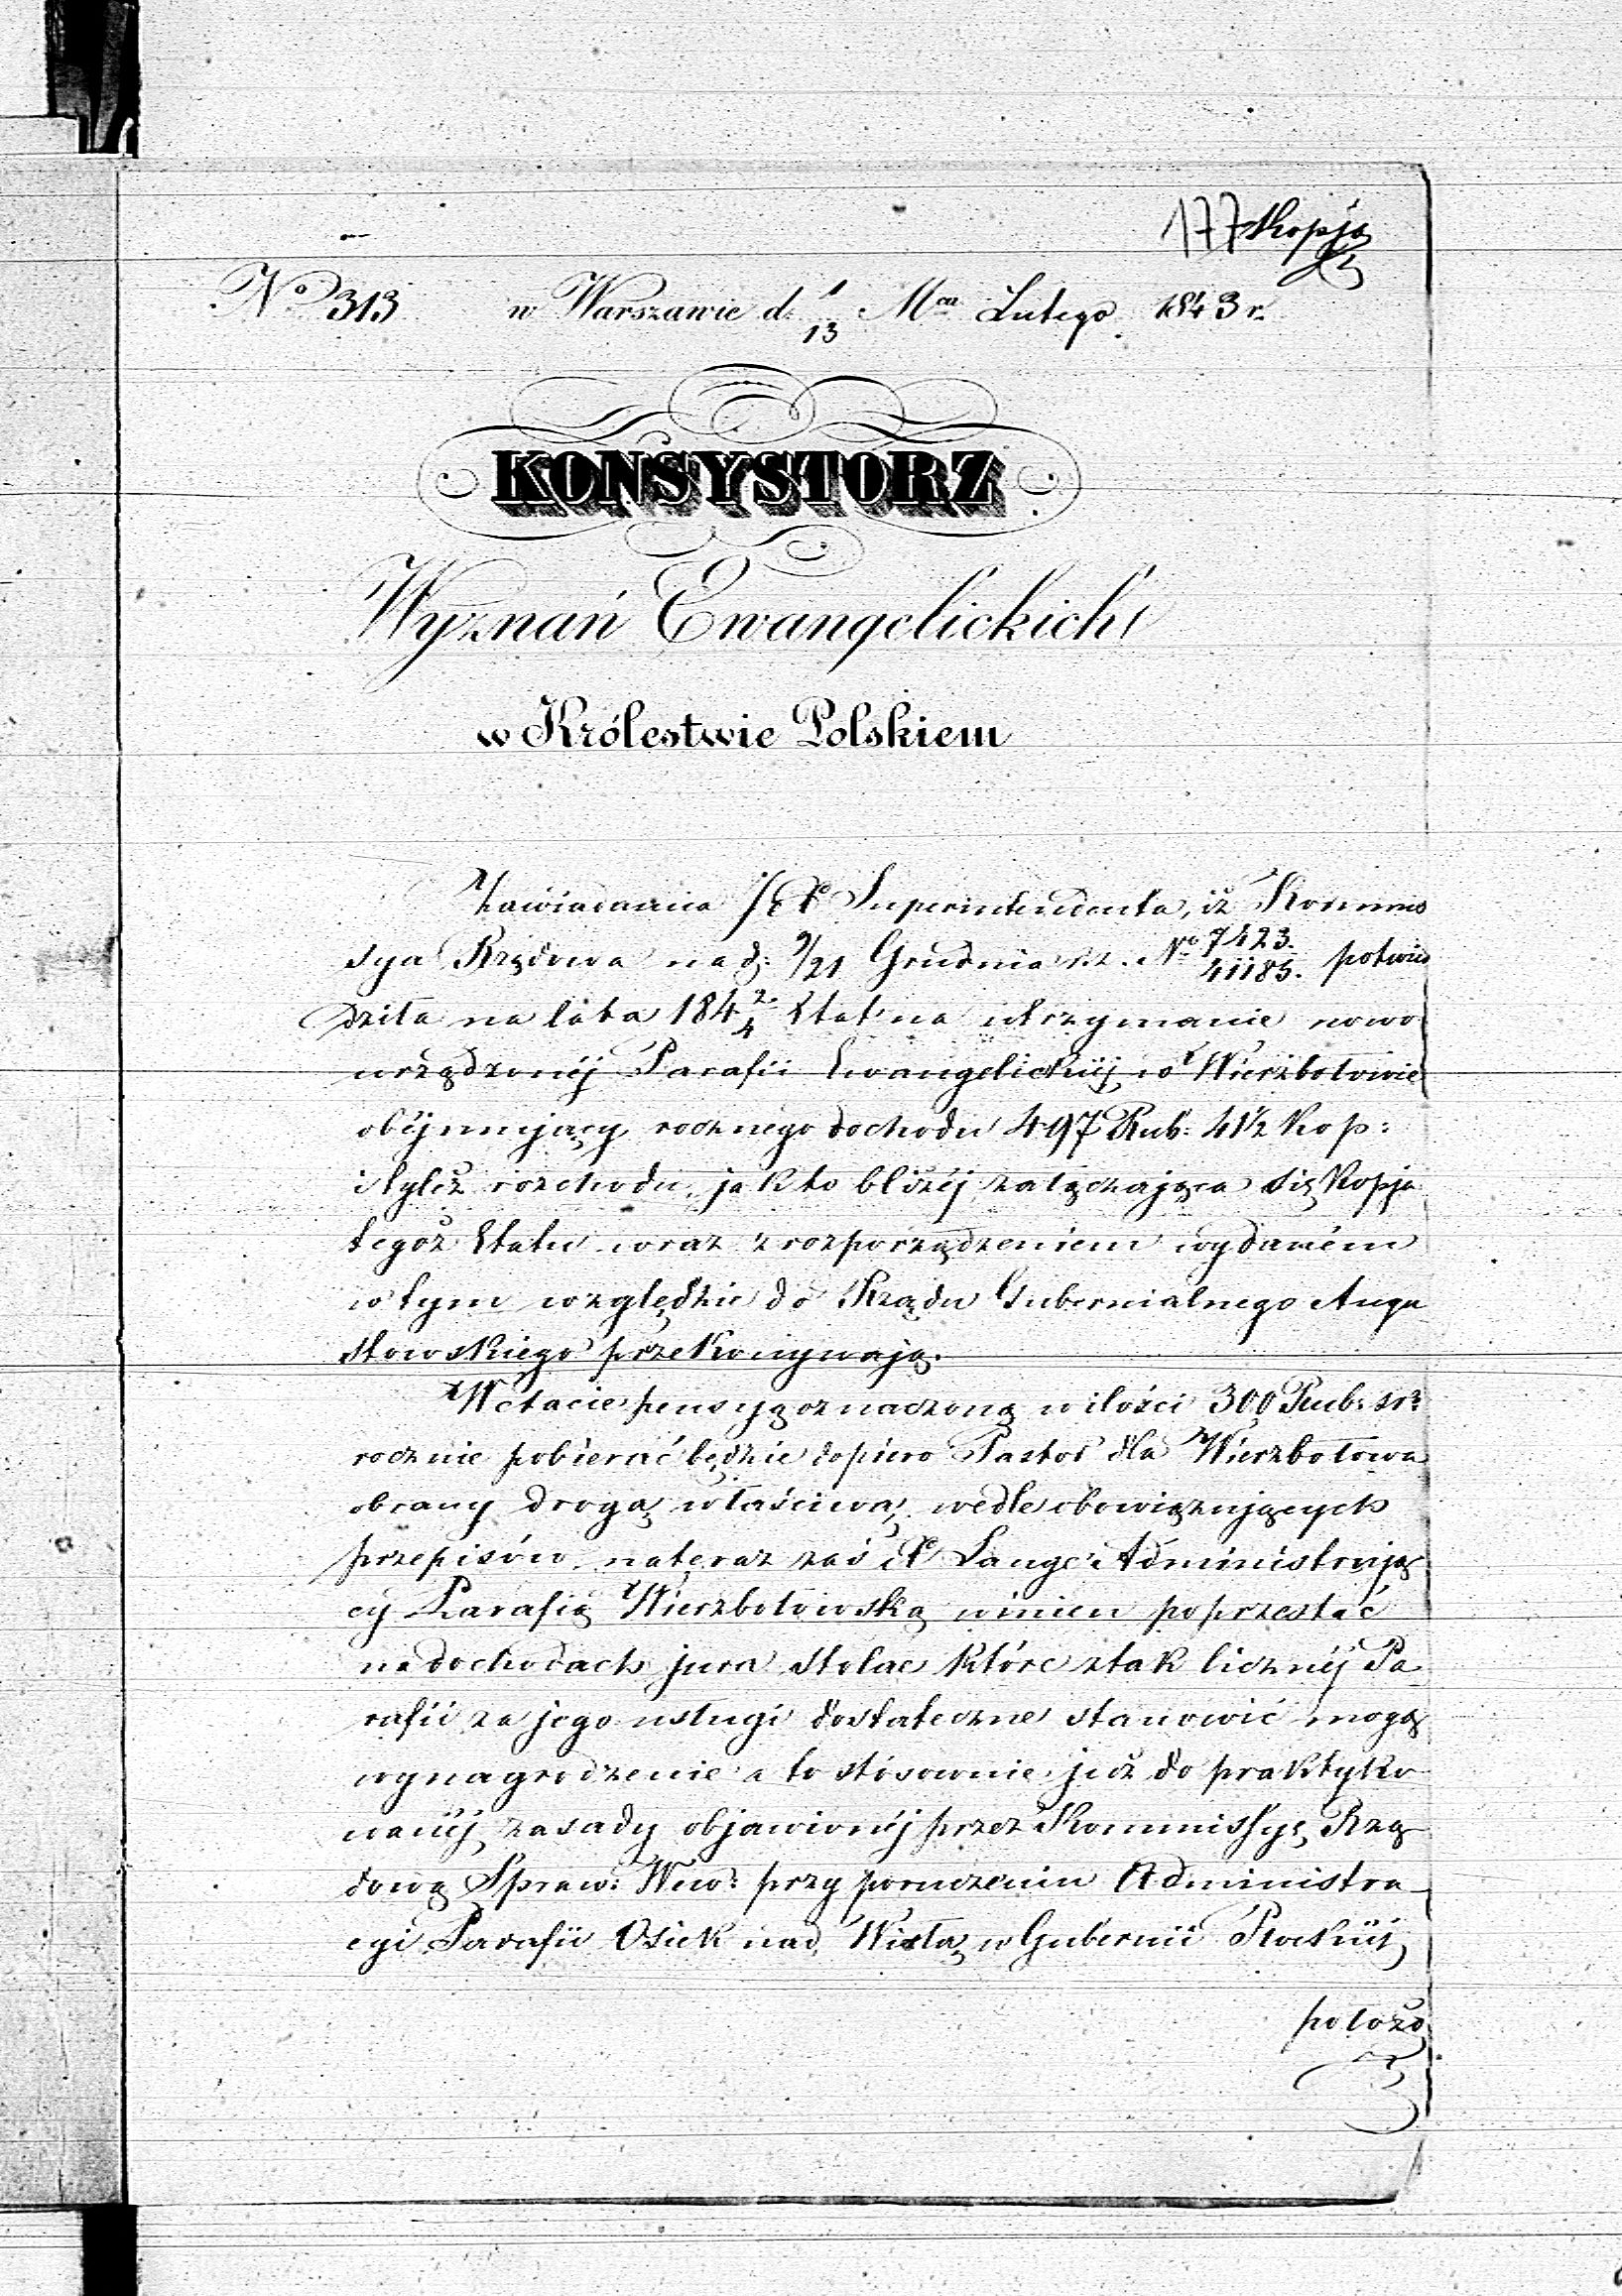 177 Kopja
No 313 w Warszawie d. 1/13 Mca Lutego 1843 r.
KONSYSTORZ
Wyznań Ewangelickich
w Królestwie Polskiem
Zawiadamia JX Superintendenta, iż Kommis
sya Rządowa na d: 9/21 Grudnia r.z. No 7423/41185. potwier
dziła na lata 184 2/4 Etat na utrzymanie nowo
urządzonéj Parafii Ewangelickiéj w Wierzbołowie
obéjmujący rocznego dochodu 497 Rub: 41½ kop:
i tyleż rozchodu, jak to bliżéj załączająca się Kopja
tegoż Etatu wraz z rozporządzeniem wydaném
w tym względzie do Rządu Gubernialnego Augu
stowskiego przekonywają.
W etacie pensyą oznaczoną w ilości 300 Rub: sr:
rocznie pobierać będzie dopiero Pastor dla Wierzbołowa
obrany drogą właściwą, wedle obowiązujących
przepisów, nateraz zaś X Lange Administrują
cy Parafią Wierzbołowską winien poprzestać
na dochodach jura stolae które z tak licznéj Pa
rafii za jego usługi dostateczne stanowić mogą
wynagrodzenie a to stósownie już do praktyko
wanéj zasady objawionéj przez Kommissyę Rzą
dową Spraw: Wew: przy poruczeniu Administra
cyi Parafii Osiek nad Wisłą w Gubernii Płockiéj
położo